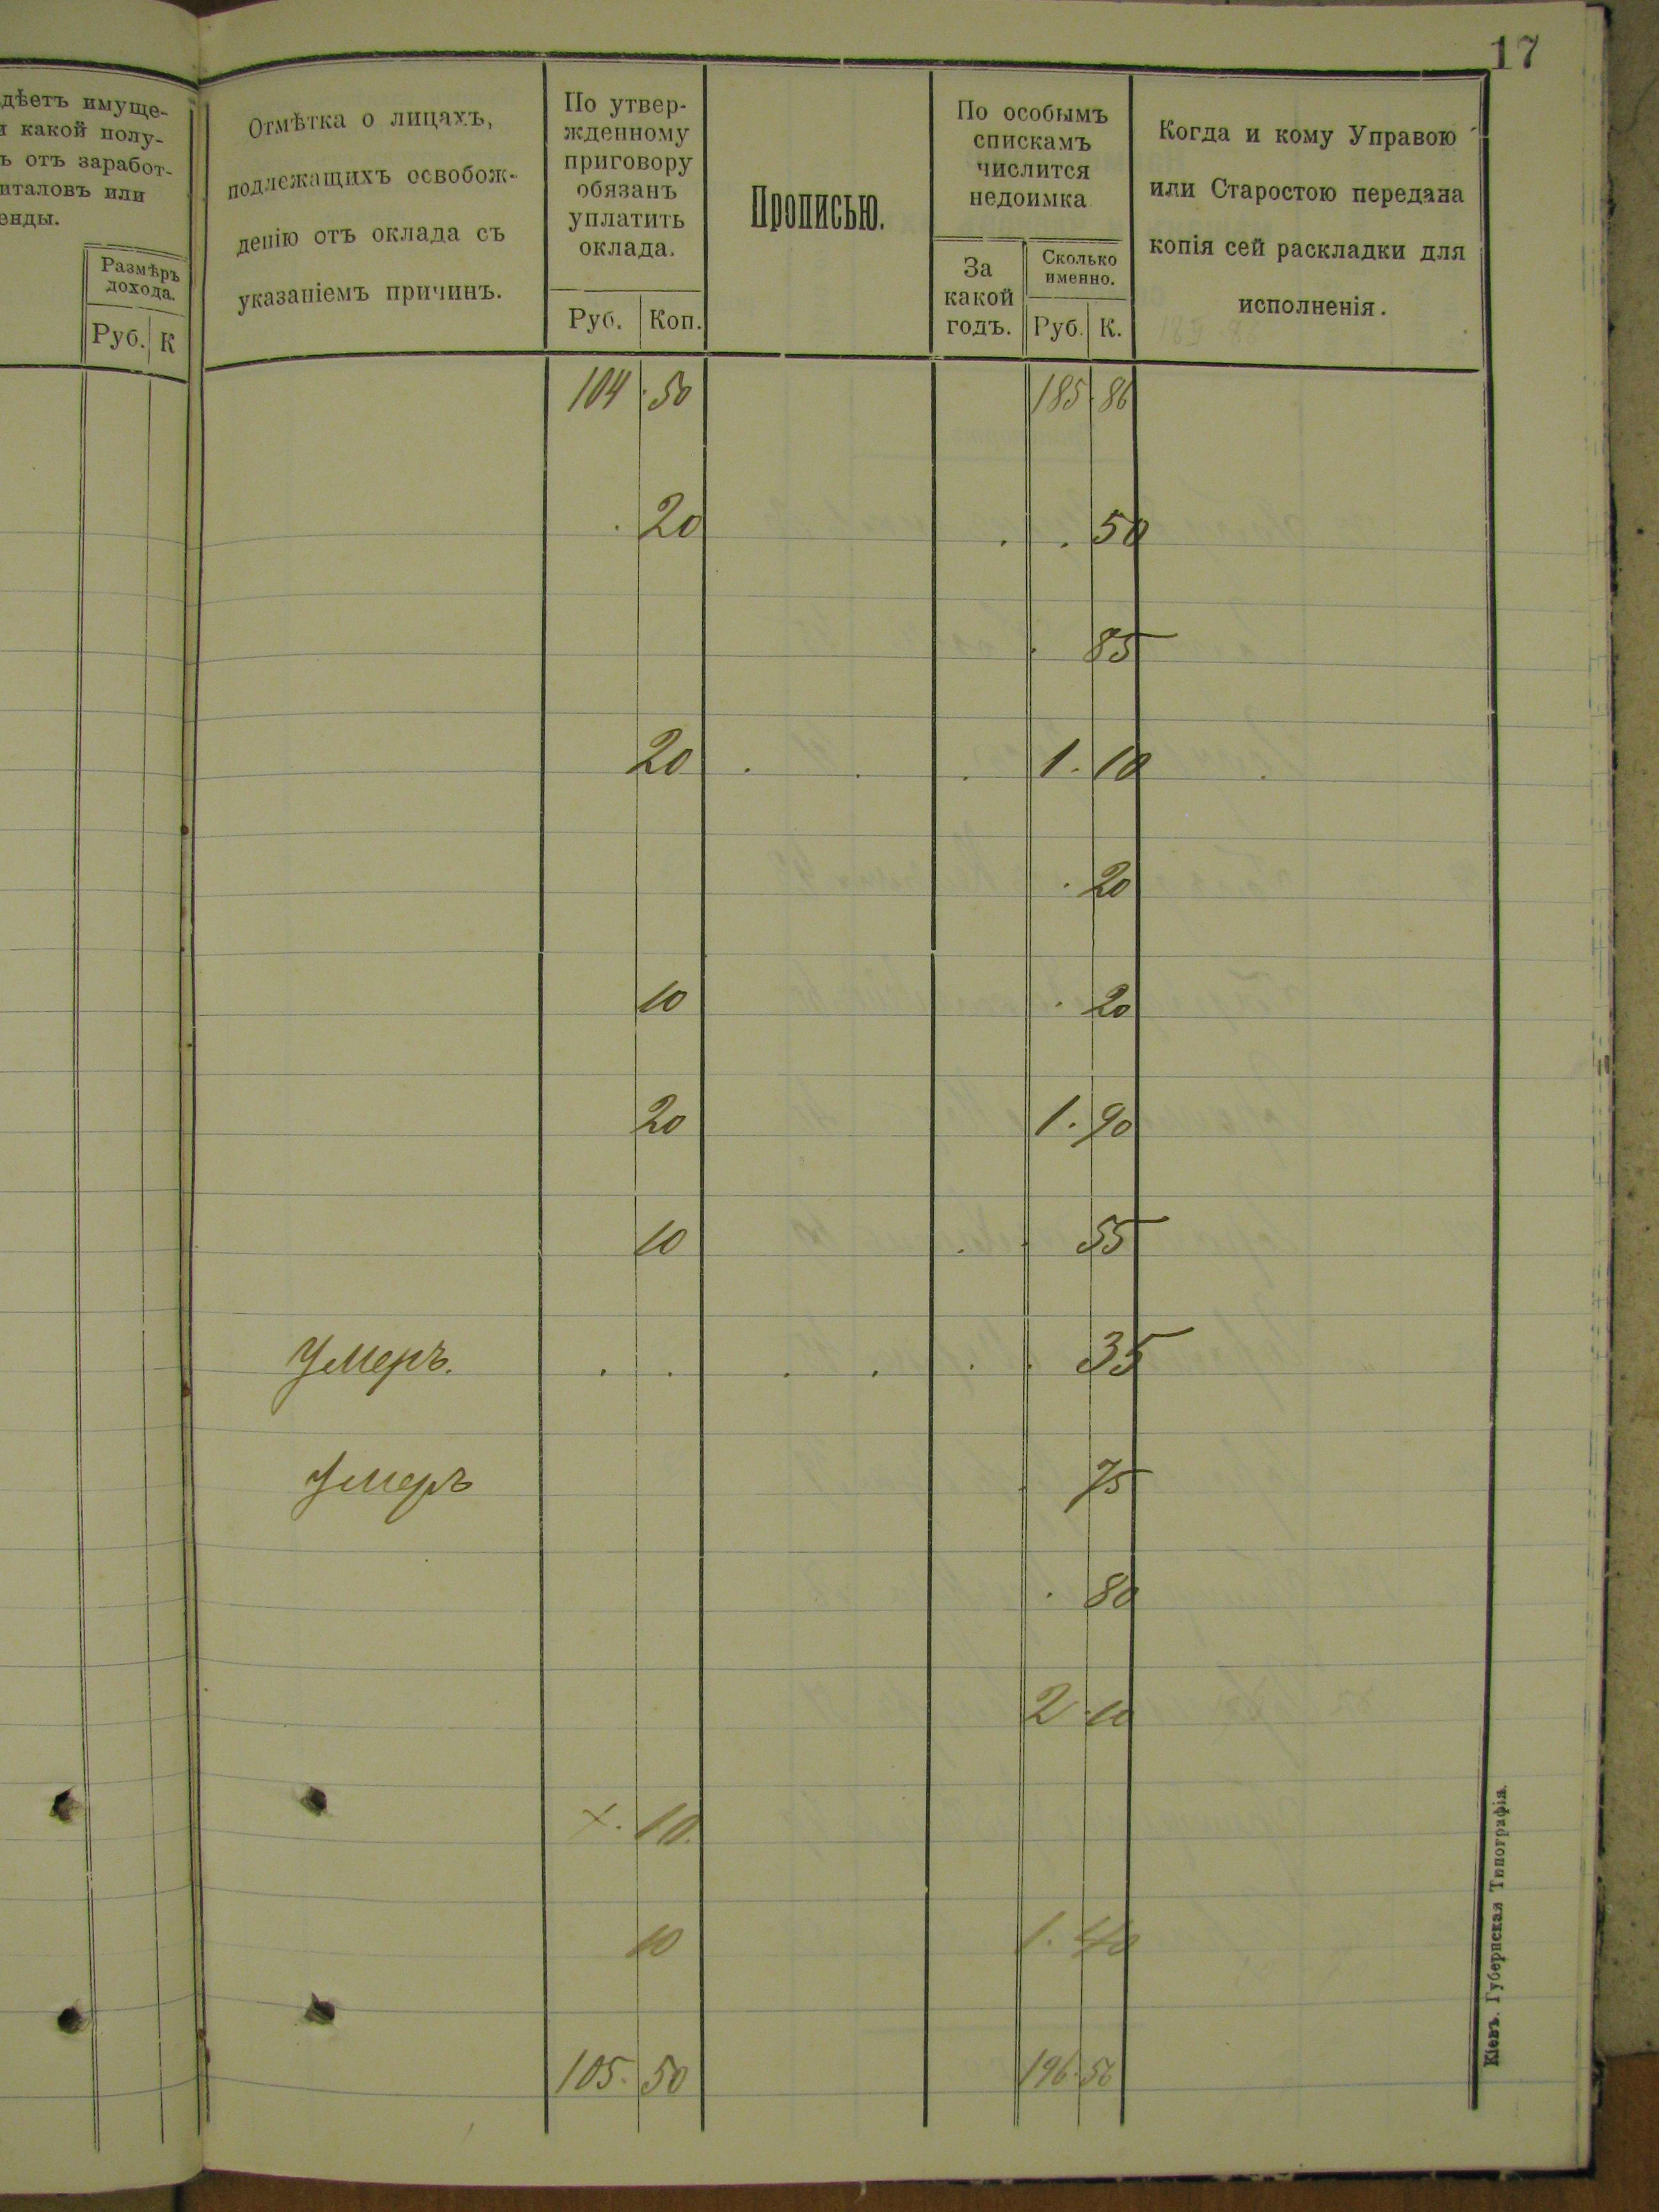 17
дѣетъ имуще-
и какой полу-
ь отъ заработ-
италовъ или
енды.
Размѣръ
дохода.
Руб. К
Отмѣтка о лицахъ,
подлежащихъ освобож-
денію отъ оклада съ
указаніемъ причинъ.
По утвер-
жденному
приговору
обязанъ
уплатить
оклада.
Руб. Коп.
Прописью.
По особымъ
спискамъ
числится
недоимка
За
какой
годъ.
Сколько
именно.
Руб. К.
Когда и кому Управою
или Старостою передана
копія сей раскладки для
исполненія.
104 . 50 185 . 86
. 20 . . 50
. 85
20 . . . 1 . 10
. 20
10 . 20
20 1 . 90
10 . . 55
Умеръ. . . . . . . 35
Умеръ . 75
. 80
2 . 10
х . 10.
10 1 . 40
105 . 50 196 . 56
Кіевъ. Губернская Типографія.